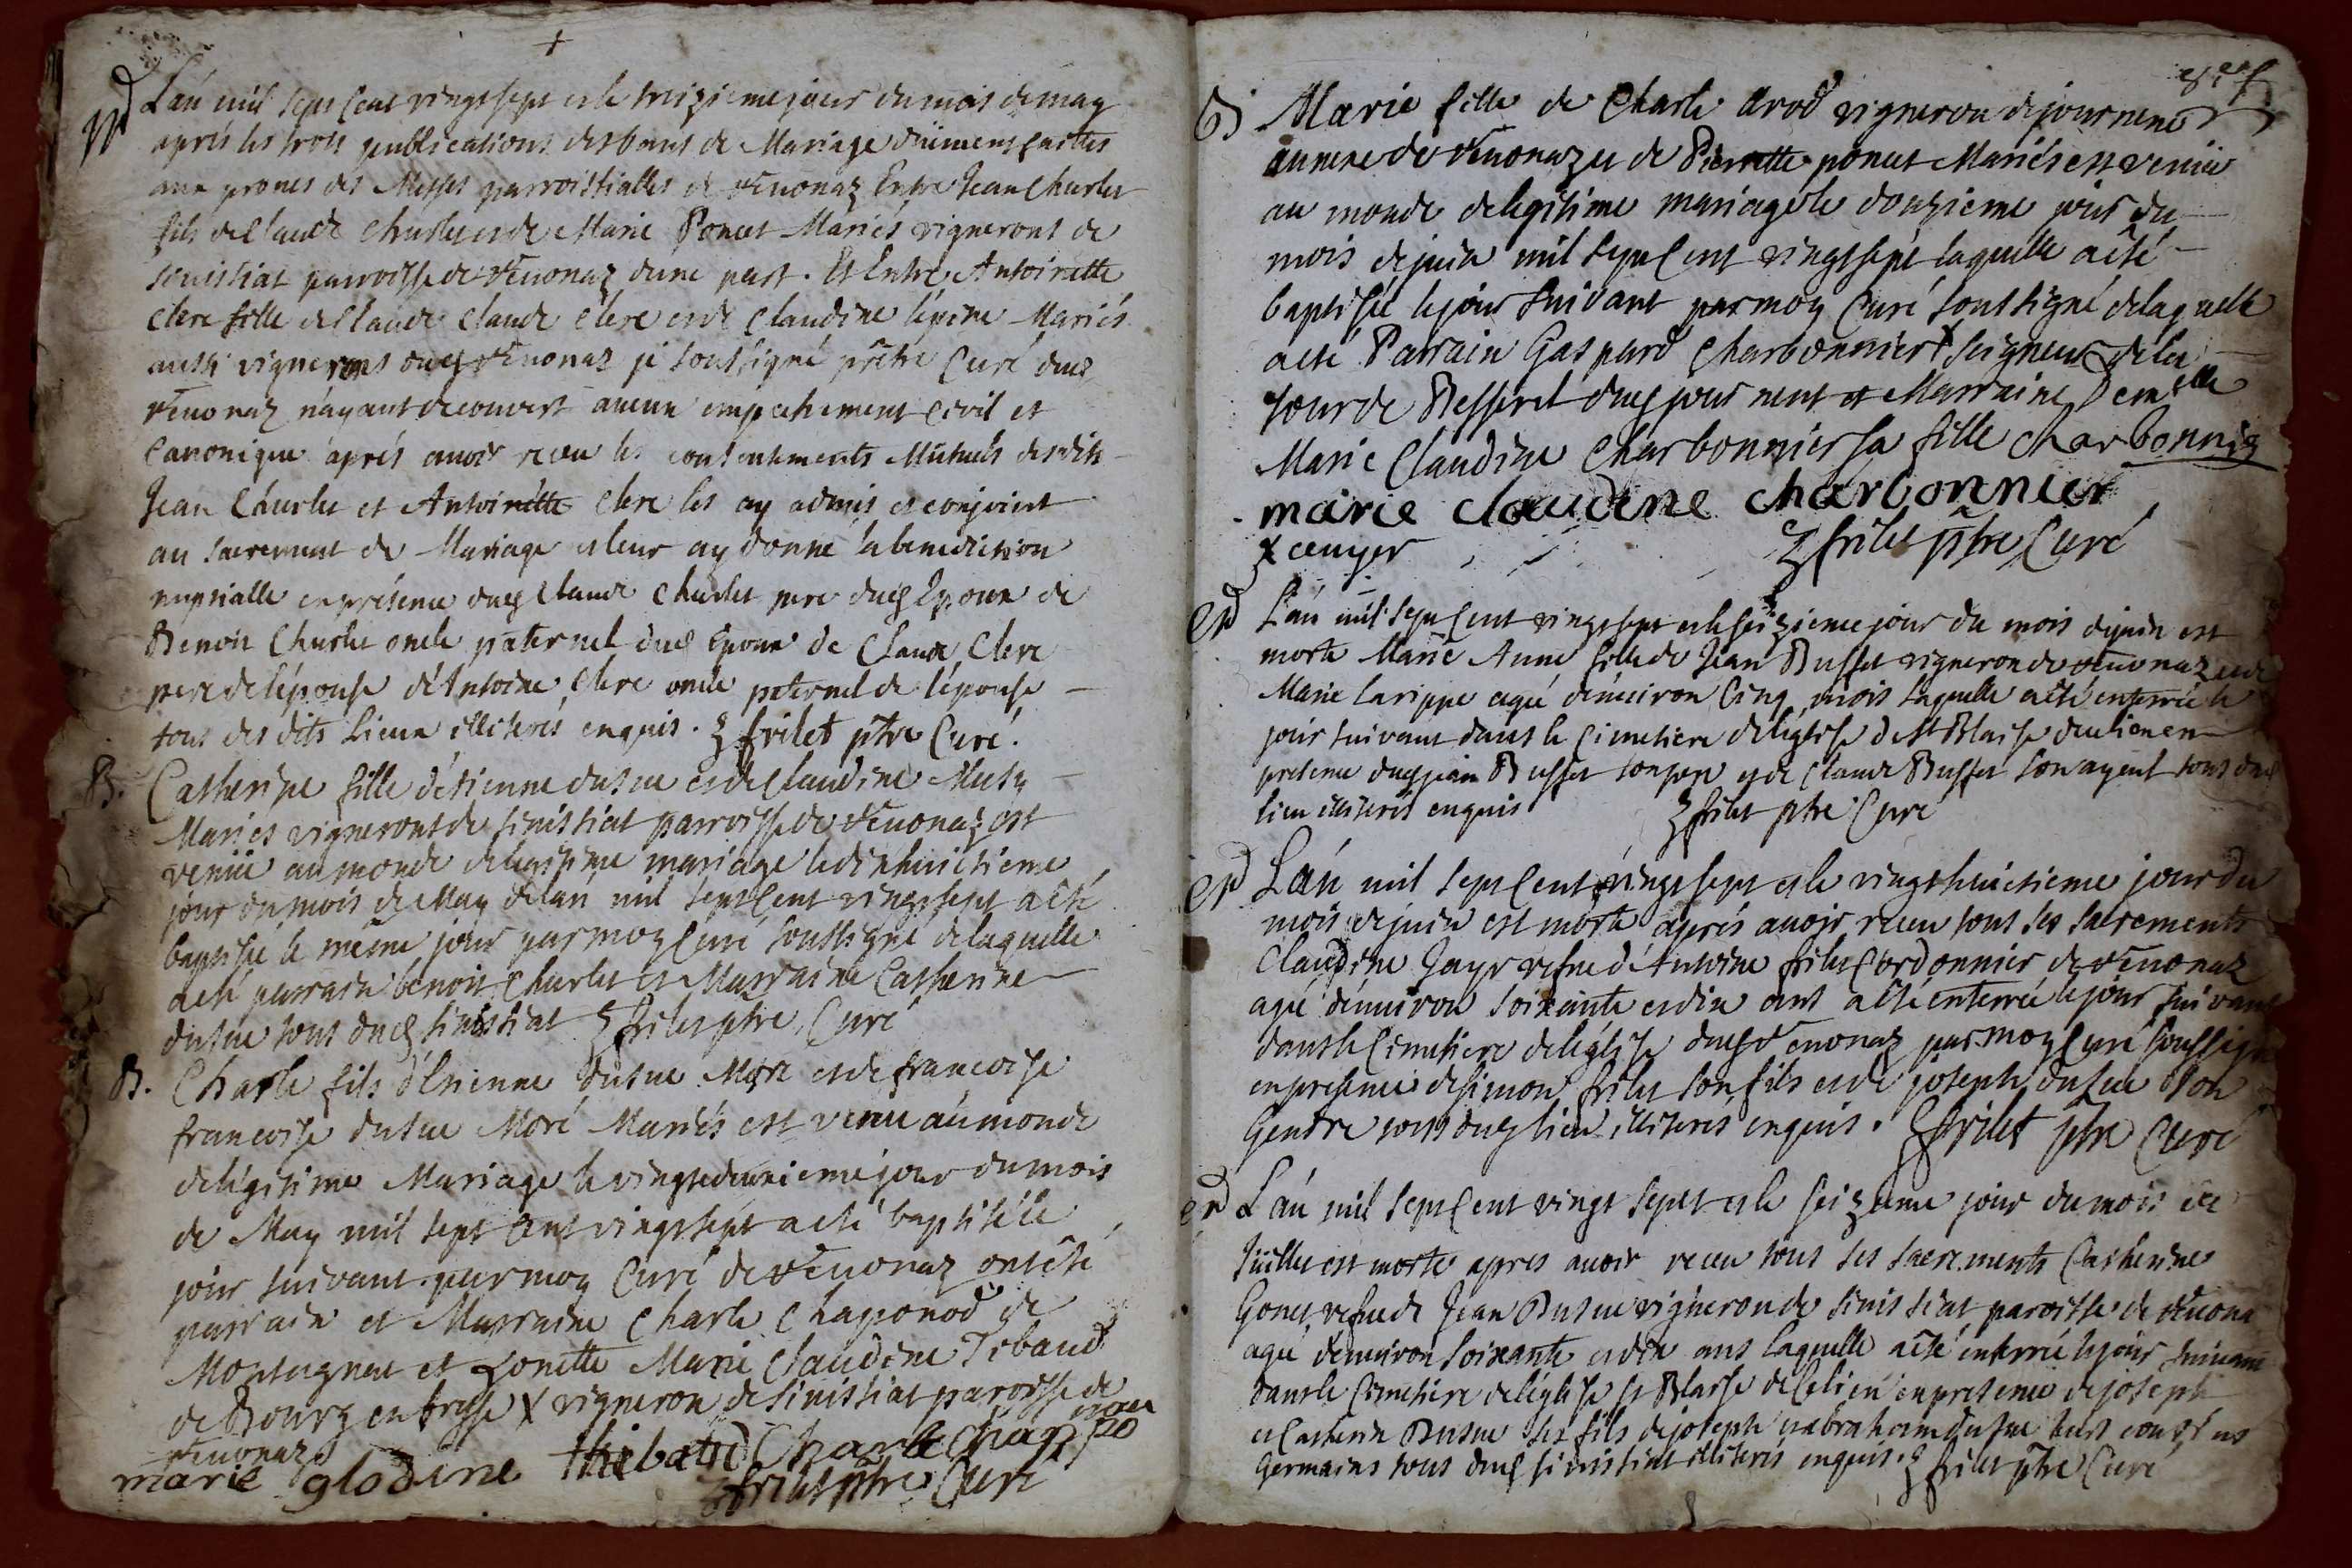 +
M
L'an mil sept Cent vingt sept et le treizieme jour du mois de may
après les trois publications des bans de Mariage düement faittes
aux prones des Messes parroissialles de vénonaz Entre Jean Charlet
fils de Claude Charlet et de Marie Poncet Mariés vignerons de
Sinissiat parroisse de vénonaz dune part. Et Entre Antoinette
Clere fille de Claude Claude Clere et de Claudine lépine Mariés
aussi vignerons dud vénonaz je soussigné prêtre Curé dud
vénonaz n'ayant decouvert aucun empechement Civil et
Canonique après avoir receu les consentements Mutuels desdits
Jean Charlet et Antoinette Clere les ay admis et conjoint
au sacrement de Mariage et leur ay donné la benediction
nuptialle en présence dud Claude Charlet pere dud Epoux de
Benoit Charlet oncle paternel dud Epoux de Claude Clere
pere de l'épouse d'Antoine Clere oncle paternel de l'épouse
tous des dits Lieux illiterés enquis. frilet ptre Curé.
B. Catherine fille d'etienne dusue et de Claudine Muty
Mariés vignerons de sinissiat parroisse de vénonaz est
venüe au monde de legitime mariage le dixhuictieme
jour du mois de May de l'an mil sept Cent vingt sept a été
baptisée le même jour par moy Curé soussigné de laquelle
a été parrain benoit Charlet et Marraine Catherine
dusue tous dud sinissiat frilet ptre Curé
B. Charle fils d'Etienne dusue Moré et de francoise
francoise dusue Moré Mariés est venu au monde
de légitime Mariage le vingtdeuxieme jour du mois
de May mil sept Cent vingt sept a été baptisé le
jour suivant par moy Curé de vénonaz ont été
parrain et Marraine Charle Chaponod de
Montagnat et Marie Claudine Tibaud
de Bourg en bresse x vigneron de sinissiat paroisse de
vénonaz
marie glodine thibaud Charle Chappo
nau
frilet ptre Curé
B Marie fille de Charle Arod vigneron de journens
annexe de vénonaz et de Pierrette poncet Mariés est venüe
au monde de legitime mariage le douzieme jour du
mois de juin mil sept Cent vingt sept laquelle a été
baptisée le jour suivant par moy Curé soussigné de laquelle
a été Parrain Gaspard Charbonnier x seigneur de la
tour de Besserel dud journens et Marraine Demelle
Marie Claudine Charbonnier sa fille Charbonnier
marie claudine charbonnier
x ecuyer frilet ptre Curé
L'an mil sept Cent vingt sept et le seizieme jour du mois de juin est
morte Marie Anne fille de Jean Buffet vigneron de vénonaz et de
Marie larippe agée d'environ Cinq mois laquelle a été enterrée le
jour suivant dans le Cimetiere de l'église de St Blaise du lieu en
presence dud jean Buffet son pere et de Claude Buffet son ayeul tous dud
lieu illiterés enquis frilet ptre Curé
L'an mil sept Cent vingt sept et le vingt huictieme jour du
mois de juin est morte après avoir receu tous ses sacrements
Claudine Jayr vefue d'Antoine frilet Cordonnier de vénonaz
agée d'environ soixante et dix ans a été enterrée le jour suivant
dans le Cimetiere de l'église dud vénonaz par moy Curé soussigné
en presence de simon frilet son fils et de joseph dusue son
Gendre tous dud lieu illiterés enquis. frilet ptre Curé
L'an mil sept Cent vingt sept et le seizieme jour du mois de
Juillet est morte apres avoir receu tous ses sacrements Catherine
Gonet vefue de Jean Dusue vigneron de sinissiat paroisse de vénona
agée d'environ soixante et dix ans laquelle a été enterrée le jour suivant
dans le Cimetiere de l'église St Blaise de Celieu en presence de joseph
et Catherin Dusue ses fils de joseph et abraham dusue leurs cousins
Germains tous dud sinissiat illiterés enquis. frilet ptre Curé